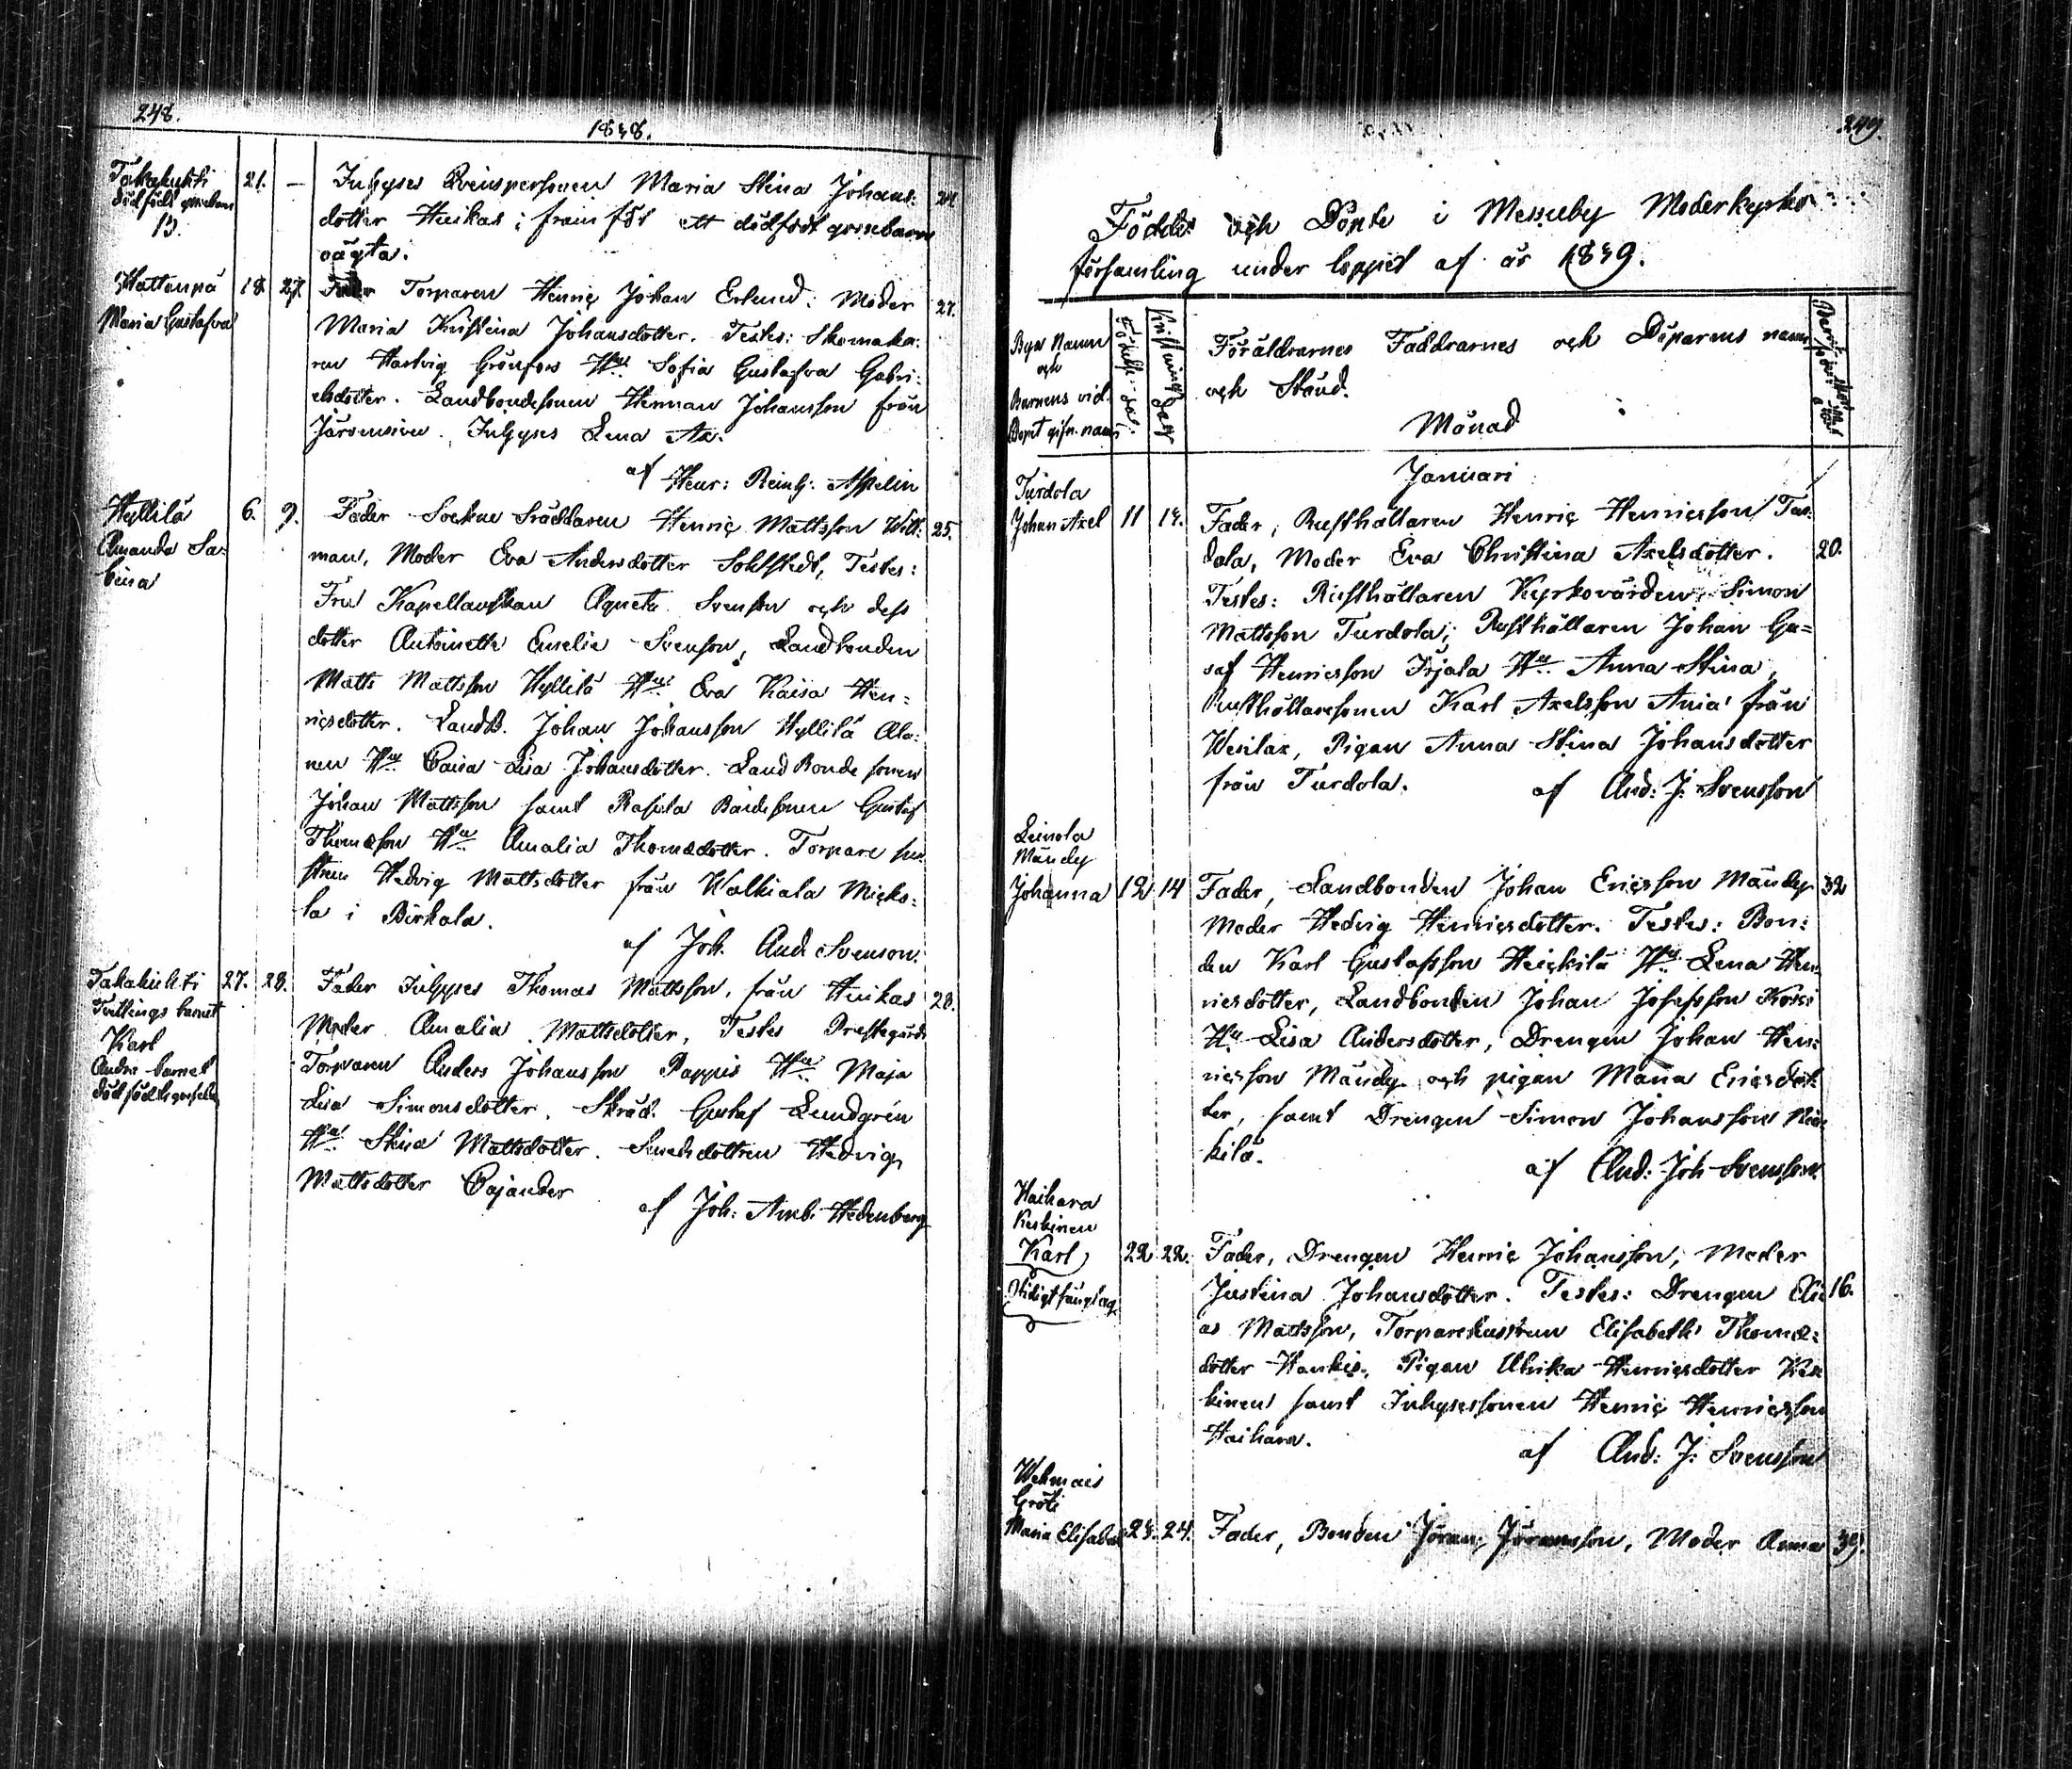 248.
1848.
Takahuhti 21. — Inhyses Qvinspersonen Maria Stina Johans: 24
dödfödt gossebarn dotter Huikas; framföt ett dödfödt gossebarn
oägta.
Hattanpä 18 27. Fader Torparen Henric Johan Erlund. Moder 27.
Maria Gustafva Maria Kristina Johansdotter. Testes: Skomaka:
ren Hartvig Grönfors Hu Sofia Gustafva Gabri:
elsdotter. Landbondesonen Herman Johansson från
Järvensivu. Inhyses Lena Ax:
af Henr: Reinh: Aspelin
Hyllilä 6. 9. Fader Sockne Sräddaren Henric Mattsson Witt: 25.
Amanda Sa: man, Moder Eva Andersdotter Sohlstedt, Testes:
bina
Fru Kapellanskan Agneta Svenson och dess
dotter Antoinette Emelie Svenson, Landbonden
Matts Mattsson Hyllilä Hu Eva Kaisa Hen:
ricsdotter. LandB. Johan Johansson Hyllilä Ala:
nen Hu Caisa Lisa Johansdotter. Land Bonde sonen
Johan Mattsson samt Bondesonen Gustaf
Thomasson Hu Amalia Thomasdotter. Torpare hu
strun Hedvig Mattsdotter från Walkiala Micko:
la i Birkala.
af Joh. And. Svenson.
Takahuhti 27. 28. Fader Inhyses Thomas Mattsson, från Huikas 28.
Tvillings barnet Moder Amalia Mattsdotter, Testes Prestegårds
Karl Torparen Anders Johansson Pappis Hu Maja
Andra barnet Lisa Simonsdotter. Skräd. Gustaf Lundgrén
dödfödt Hu Stina Mattsdotter. Smedsdottren Hedvig
Mattsdotter Cajander
af Joh: Amb: Hedenberg
249.
Födde och Döpte i Messuby Moderkyrko
församling under loppet af år 1849.
Byns Namn
och
Barnens vid
Dopet gifn. namn
Födelse-dag.
Kristnings dag
Föräldrarnes Faddrarnes och Döparens namn
och Stånd.
Månad
Januari
Turdola
Johan Axel 11 14. Fader, Rusthållaren Henric Henricsson Tur:
dola, Moder Eva Christina Axelsdotter. 20.
Testes: Rusthållaren Kyrkovärden Simon
Mattsson Turdola; Rusthållaren Johan Gu=
staf Henricsson Irjala Hu Anna Stina,
Rusthållaresonen Karl Axelsson Ania från
Wesilax, Pigan Anna Stina Johansdotter
från Turdola. af And: J: Svensson
Leinola
Mändy
Johanna 12 14 Fader, Landbonden Johan Ericsson Mändy 32
Moder Hedvig Henricsdotter. Testes: Bon:
den Karl Gustafsson Heickilä Hu Lena Hen
ricsdotter, Landbonden Johan Josefsson Kossi
Hu Lisa Andersdotter, Drengen Johan Hen:
ricsson Mändy och pigan Maria Ericsdot
ter, samt Drengen Simon Johansson
kilä. af And: Joh Svensson.
Haihara
Keskinen
Karl 22 22. Fader, Drengen Henric Johansson, Moder
Justina Johansdotter. Testes: Drengen Eli 16.
as Mattsson, Torparehustrun Elisabeth Thomas:
dotter Hankis, Pigan Ulrika Henricsdotter Kes
kinen samt Inhysessonen Henric Henricsson
Haihara. af And: J: Svensson
Wehmais
Gröti
Maria Elisabet 23. 24. Fader, Bonden Jöran Jöransson, Moder Anna 39.